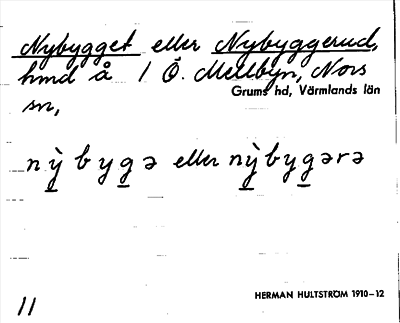 Nybygget eller Nybyggerud,
hmd å 1 Ö. Mellbyn, Nors
Grums hd, Värmlands län
sn,
nỳbygə eller nỳbygərə
HERMAN HULTSTRÖM 1910–12
11